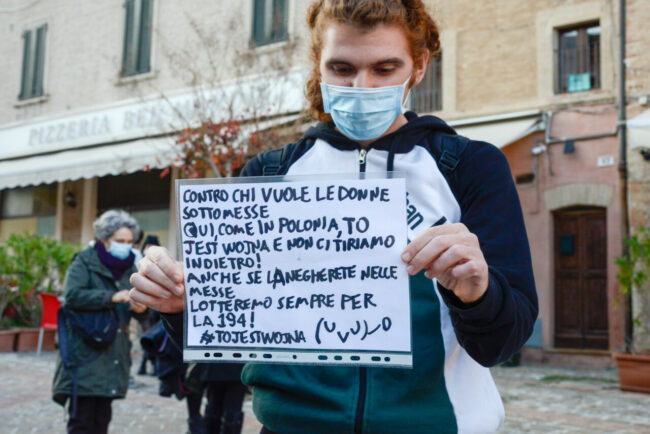 PIZZERIA BE
CONTRO CHI VUOLE LE DONNE
SOTTOMESSE
QUI, COME IN POLONIA, TO
JEST WOJNA E NON CI TIRIAMO
INDIETRO!
ANCHE SE LA NEGHERETE NELLE
MESSE
LOTTEREMO SEMPRE PER
LA 194!
#TOJESTWOJNA